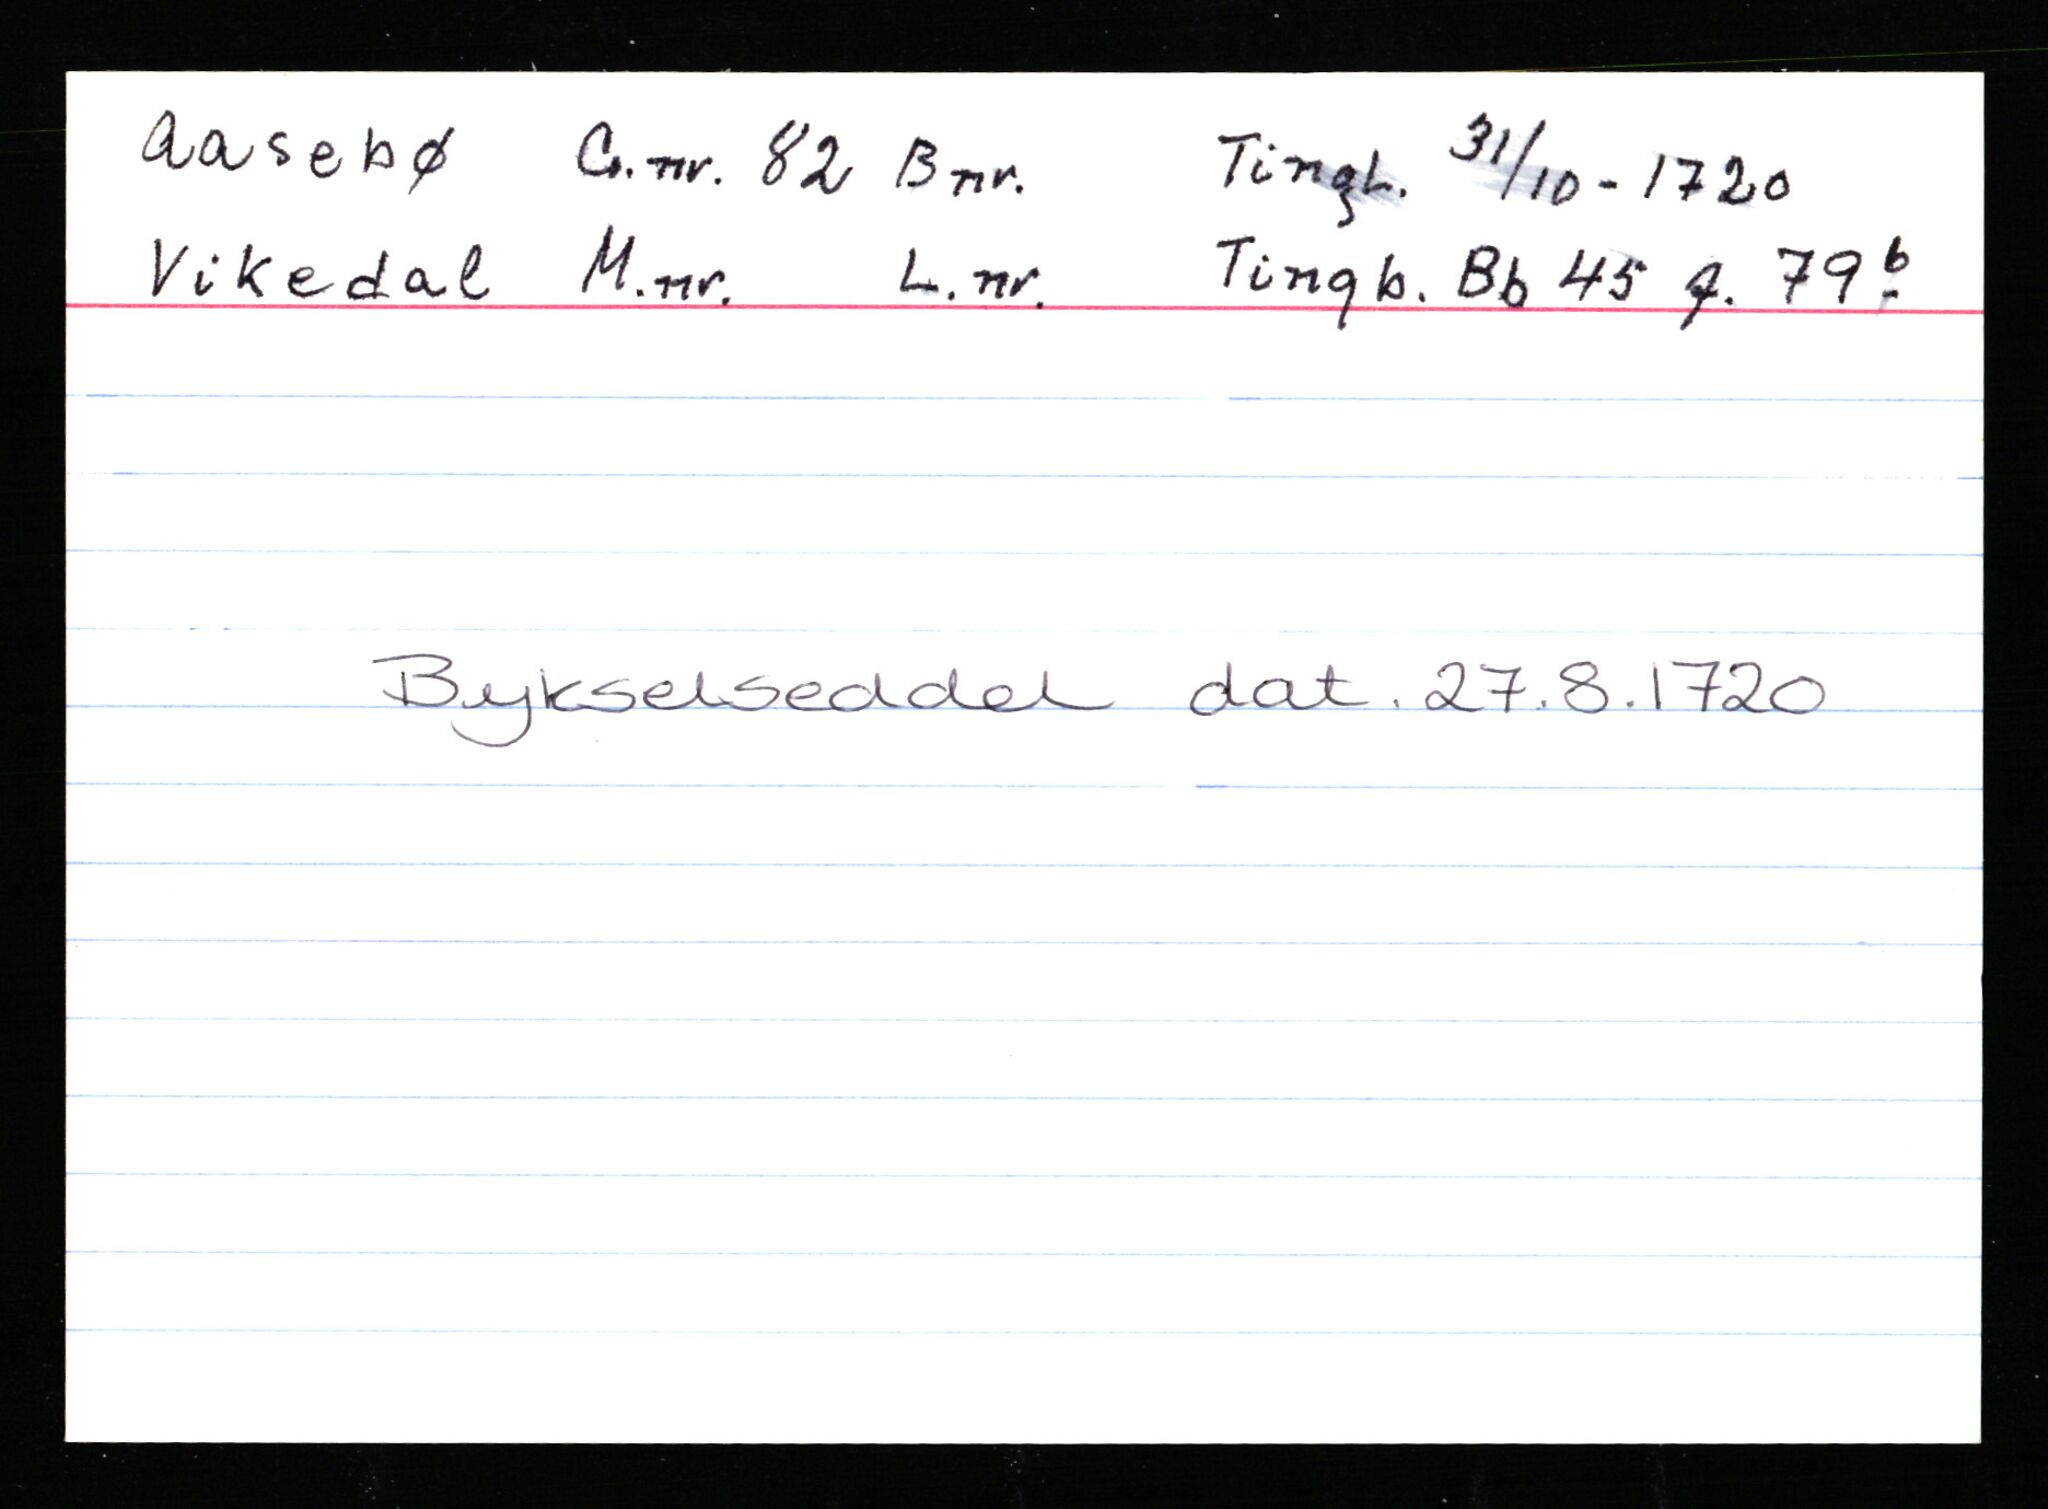 Aasebø G.nr. 82 Bnr. Tingl. 31/10-1720
Vikedal M.nr. L.nr. Tingb. Bb 45 f. 79b
Bykselseddel dat. 27.8.1720